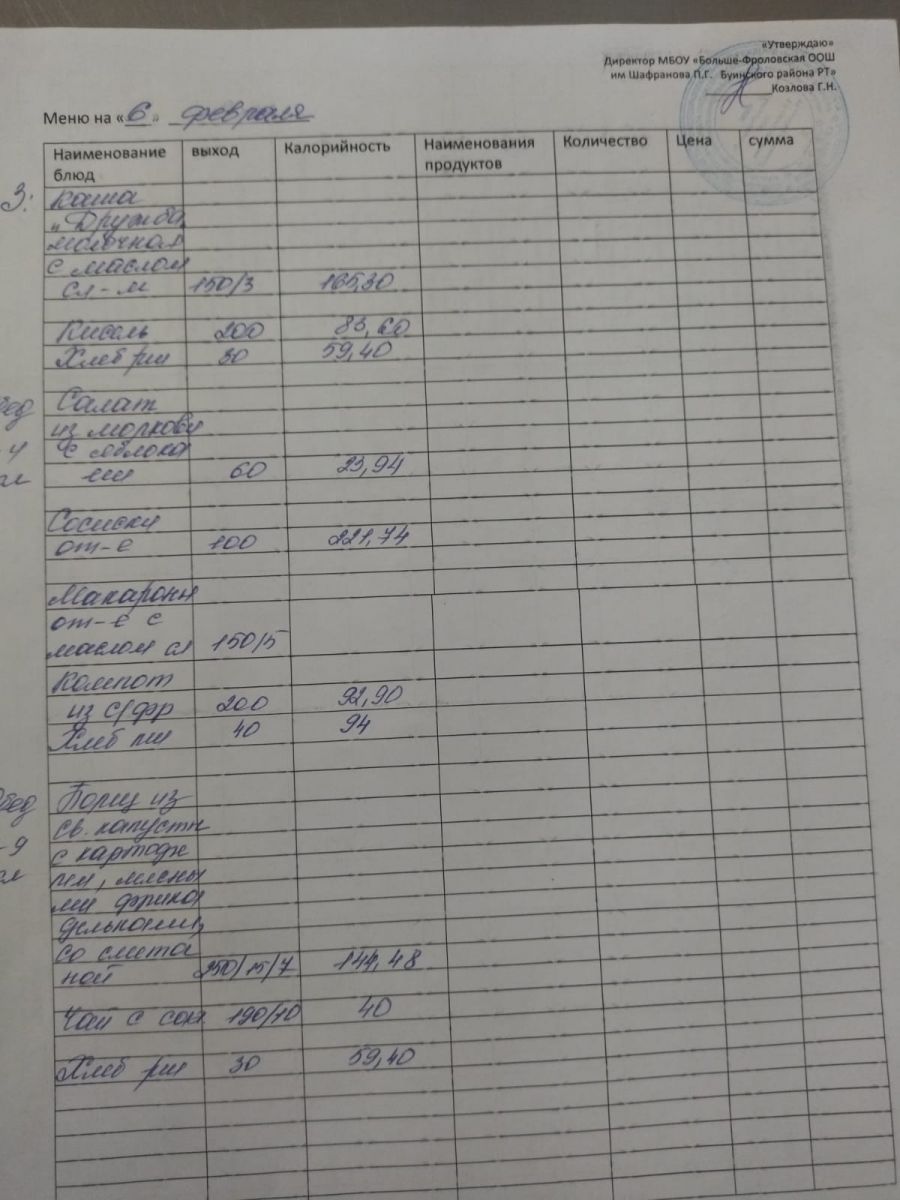 «Утверждаю»
Директор МБОУ «Больше-Фроловская ООШ
им Шафранова П.Г. Буинского района РТ»
Козлова Г.Н.
Меню на «6» февраля
Наименование блюд выход Калорийность Наименования продуктов Количество Цена сумма
З: Каша
"Дружба
молочная
с маслом
сл-м 150/3 165,30
Кисель 200 83,60
Хлеб рш 30 59,40
Салат
из моркови
с яблока
ми 60 23,94
Сосиски
от-е 100 221,74
Макароны
от-е с
маслом сл 150/5
Компот
из с/фр 200 92,90
Хлеб пш 40 94
Борщ из
св. капусты
с картофе
лем, мясны
ми фрика
дельками,
со смета
ной 250/15/7 144,48
Чай с сах 190/10 40
Хлеб рш 30 59,40